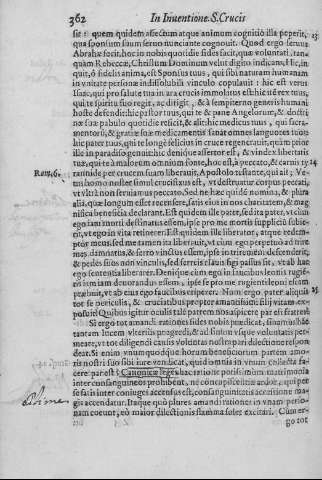 362 In Inuentione S. Crucis
sit: quem quidem affectum atque animum cognitio illa peperit, 23
qua sponsum suum seruo nunciante cognouit. Quod ergo seruus
Abrahæ fecit, hoc in nobis quotidie fides facit, quæ voluntati, tanquam
Rebeccæ, Christum Dominum velut digito indicans, Hic, inquit,
ô fidelis anima, est Sponsus tuus, qui sibi naturam humanam
in vnitate personæ indissolubili vinculo copulauit: hic est verus
Isaac, qui pro salute tua in ara crucis immolatus est: hic est rex tuus,
qui te spiritu suo regit, ac dirigit, & à sempiterno generis humani
hoste defendit: hic pastor tuus, qui te & pane Angelorum, & doctrinæ
suæ pabulo quotidie reficit, & alit: hic medicus tuus, qui sacramentorū,
& gratiæ suæ medicamentis sanat omnes languores tuos:
hic pater tuus, qui te longè felicius in cruce regenerauit, quàm prior
ille in paradiso genuit: hic denique assertor est, & vindex libertatis
tuæ, qui te à maiorem omnium iione, hoc est, à peccato, & carnis tyrannide 24
per crucem suam liberauit, Apostolo testante, qui ait; Vetus Rom. 6.
homo noster simul crucifixus est, vt destruatur corpus peccati,
vt vltrà non seruiamus peccato. Sed ne hæc quidē nomina, & pluraalia,
quæ longum esset recensere, satis eius in nos charitatem, & magnifica
beneficia declarant. Est quidem ille pater, sed ita pater, vt cùm
ego iam morti destinatus essem, ipse pro me mortis supplicium subierit,
vt ego in vita retinerer. Est quidem ille liberator, atque redemptor
meus, sed me tamen ita liberauit, vt cùm ego perpetuò ad triremes
damnatus, & ferro vinctus essem, ipse in triremim descenderit,
& pedes suos non vinculis, sed ferreis clauis figi passus sit, vt ab hac
ego sententia liberarer. Denique cùm ego in faucibus leonis rugientis
iam iam deuorandus essem, ipse se pro me rugienti leoni escam
præbuit, vt ab eius ego faucibus eriperer. Num ergo pater aliquis 25
tot se periculis, & cruciatibus propter amantissimū filij vitam exposuit?
Quibus igitur oculis talē patrem nos aspicere par est fratres?
Si ergo tot amandi rationes fides nobis prædicat, sinamus hāc
tantam lucem vlterius progredi, & ad finem vsque voluntatis permeare,
vt tot diligendi causis voluntas nostra pari dilectione respondeat.
Si enim vnumquodque horum beneficiorum partem amoris
nostri suo sibi iure vendicat, quid omnia in vnum collecta facere
par est? Canonicæ leges hac ratione potissimum matrimonia
inter consanguineos prohibent, nè concupiscentiæ ardor, qui per
se satis inter coniuges accensus est, consanguinitatis accessione magis
accendatur. Itaque quò plures amandi rationes in vnam personam
coeunt, eò maior dilectionis flamma solet excitari. Cùm ergo
go tot